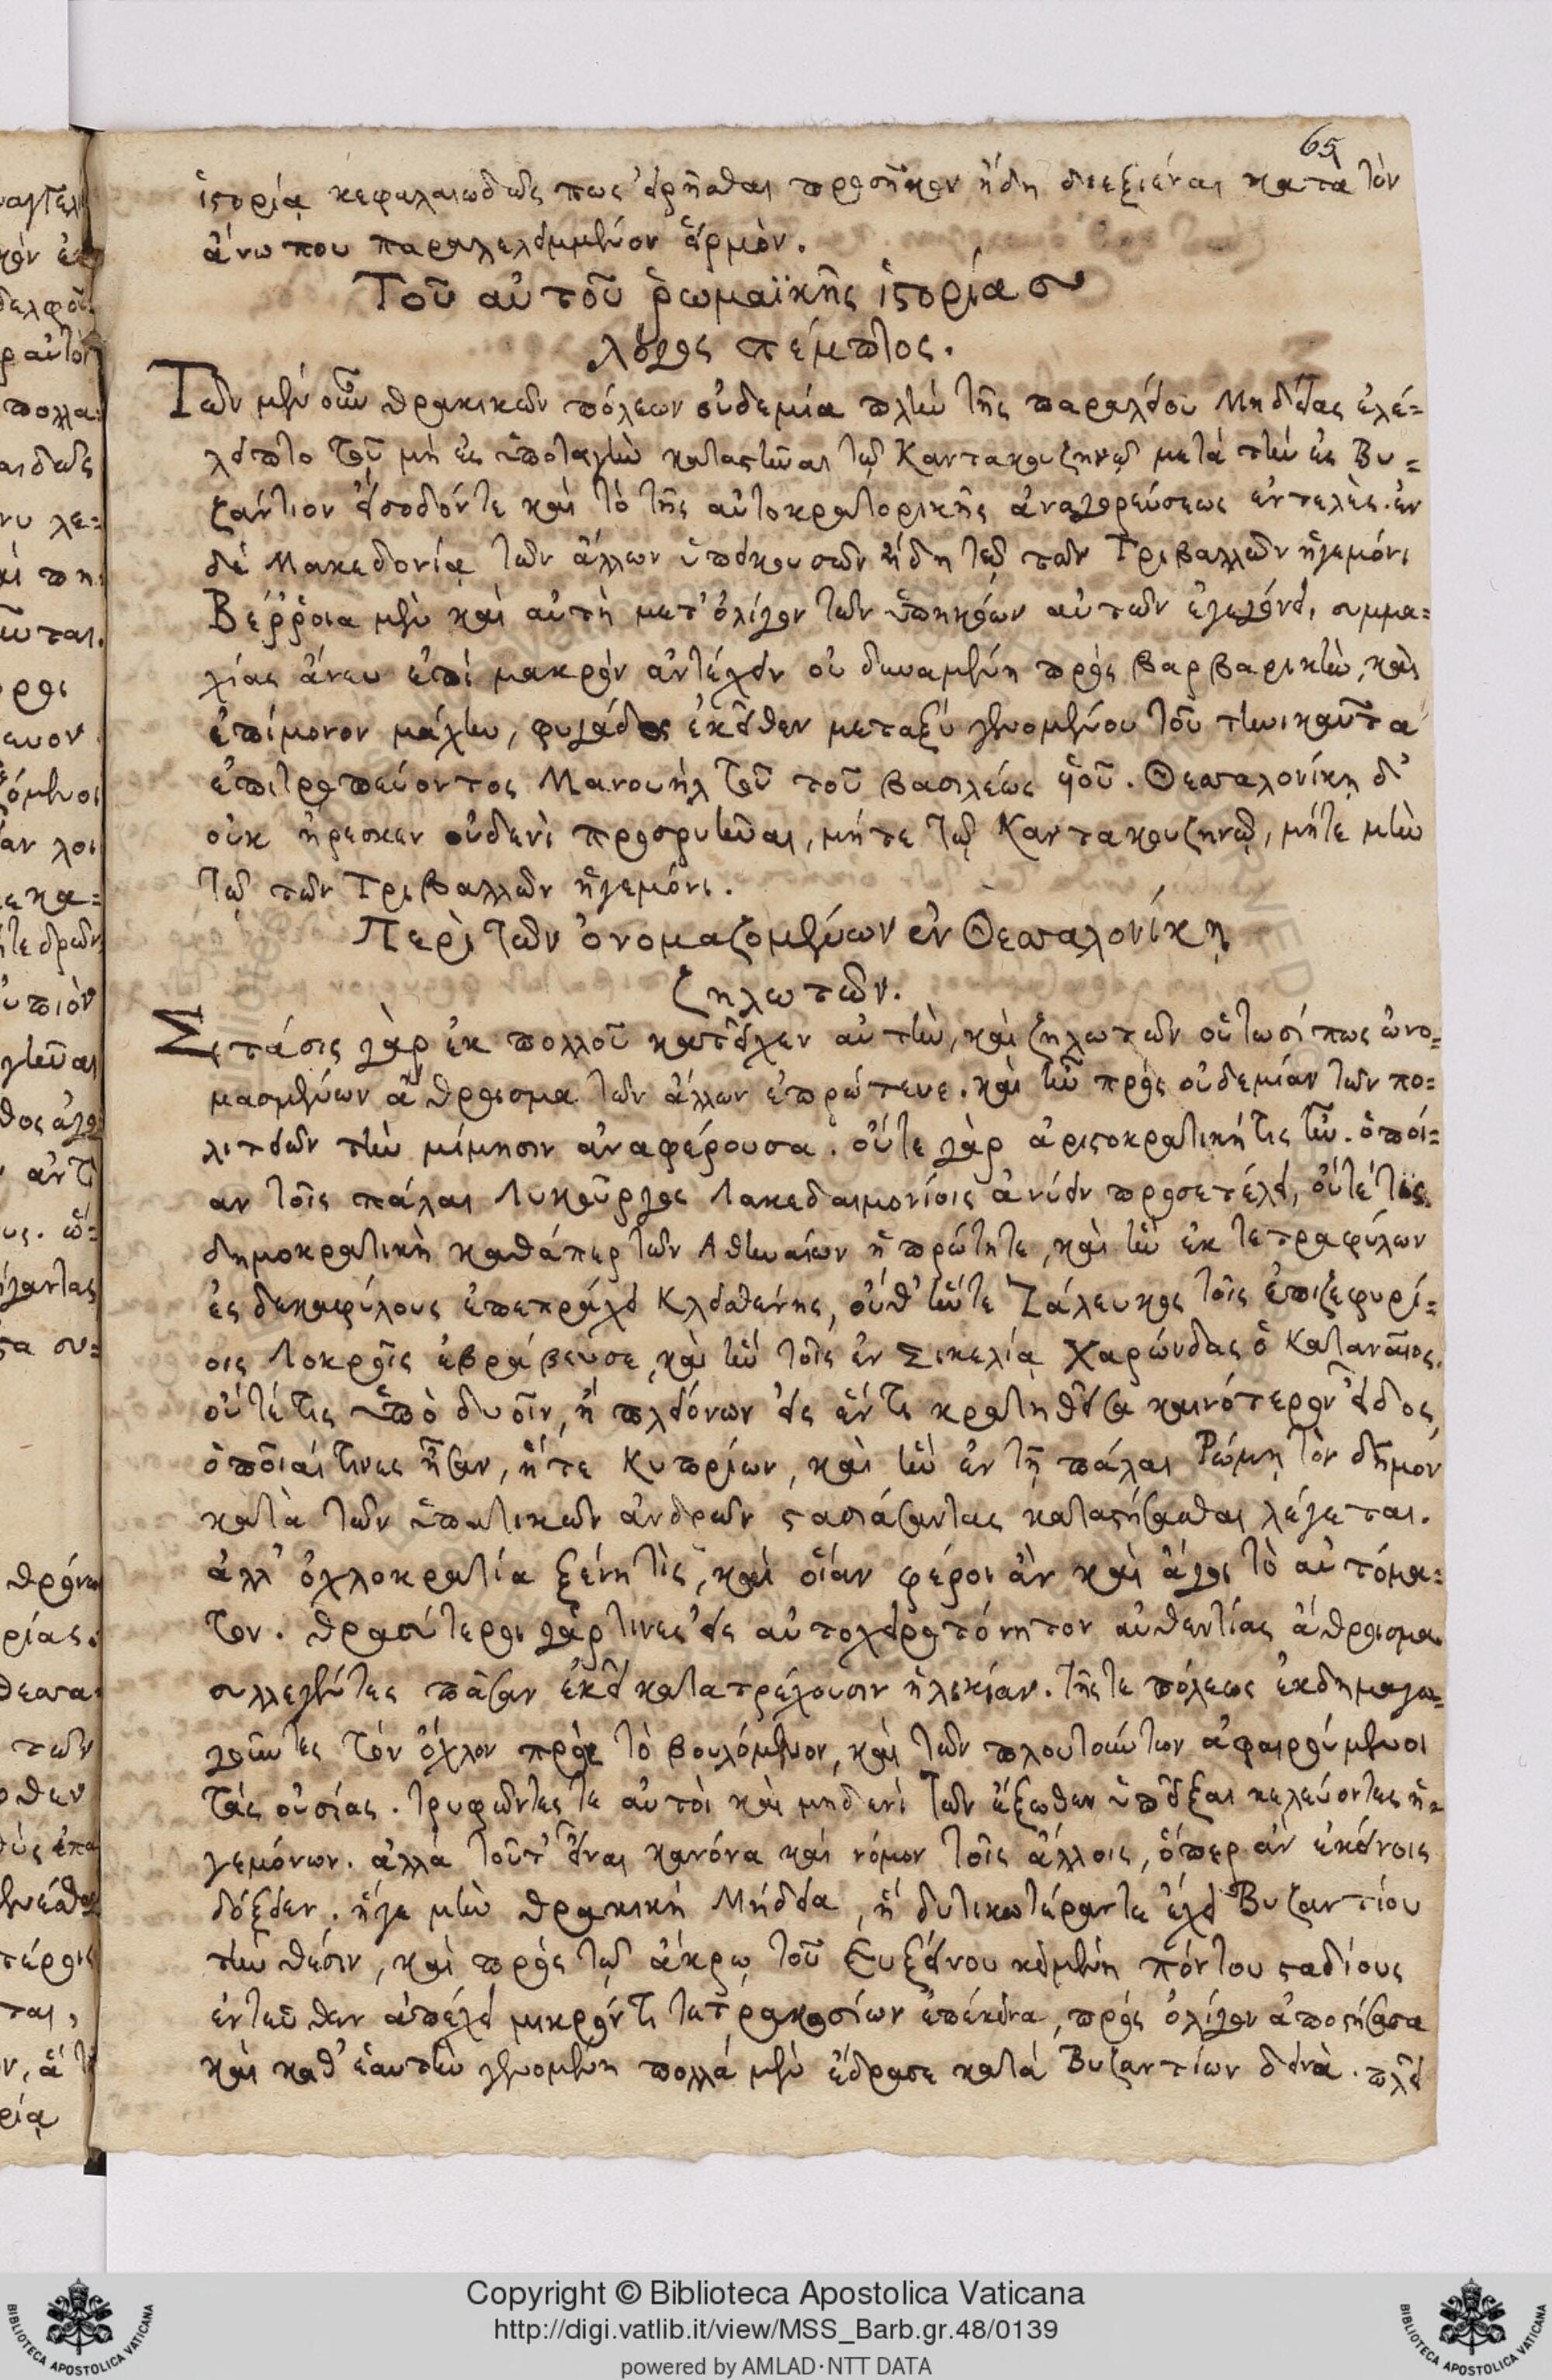 65
ἱστορίᾳ κεφαλαιωδῶς πως εἰρῆσθαι προσῆκον ἤδη διεξιέναι κατὰ τὸν
ἄνω που παραλελειμμένον εἱρμόν.
Τοῦ αὐτοῦ ῥωμαϊκῆς ἱστορίας
λόγος πέμπτος.
Τῶν μὲν οὖν θρακικῶν πόλεων οὐδεμία πλὴν τῆς παραλίου Μηδείας ἐλέ=
λειπτο τοῦ μὴ ἐς ὑποταγὴν καταστῆναι τῷ Καντακουζηνῷ μετὰ τὴν ἐς Βυ=
ζάντιον εἴσοδόν τε καὶ τὸ τῆς αὐτοκρατορικῆς ἀναγορεύσεως ἐντελές. ἐν
δὲ Μακεδονίᾳ τῶν ἄλλων ὑπεικουσῶν ἤδη τῷ τῶν Τριβαλλῶν ἡγεμόνι
Βέρροια μὲν καὶ αὐτὴ μετ' ὀλίγον τῶν ὑπηκόων αὐτῶν ἐγεγόνει, συμμα=
χίας ἄνευ ἐπὶ μακρὸν ἀντέχειν οὐ δυναμένη πρὸς βαρβαρικὴν, καὶ
ἐπίμονον μάχην, φυγάδος ἐκεῖθεν μεταξὺ γενομένου τοῦ τηνικαῦτα
ἐπιτροπεύοντος Μανουὴλ τοῦ τοῦ βασιλέως υἱοῦ. Θεσσαλονίκῃ δ'
οὐκ ἤρεσκεν οὐδενὶ προσρυῆναι, μήτε τῷ Καντακουζηνῷ, μήτε μὴν
τῷ τῶν Τριβαλλῶν ἡγεμόνι.
Περὶ τῶν ὀνομαζομένων ἐν Θεσσαλονίκῃ
ζηλωτῶν.
Στάσις γὰρ ἐκ πολλοῦ κατεῖχεν αὐτὴν, καὶ ζηλωτῶν οὑτωσί πως ὠνο=
μασμένων ἄθροισμα τῶν ἄλλων ἐπρώτευε. καὶ ἦν πρὸς οὐδεμίαν τῶν πο=
λιτειῶν τὴν μίμησιν ἀναφέρουσα. οὔτε γὰρ ἀριστοκρατική τις ἦν. ὁποί=
αν τοῖς πάλαι Λυκοῦργος Λακεδαιμονίοις ἀνύειν προσετέλει, οὔτέ τις
δημοκρατικὴ καθάπερ τῶν Ἀθηναίων ἡ πρώτη τε, καὶ ἣν ἐκ τετραφύλων
ἐς δεκαφύλους ἐπεπράχει Κλεισθένης, οὔθ' ἥντε Ζάλευκος τοῖς ἐπιζεφυρί=
οις Λοκροῖς ἐβράβευσε, καὶ ἣν τοῖς ἐν Σικελίᾳ Χαρώνδας ὁ Καταναῖος.
οὔτέ τις ὑπὸ δυοῖν, ἢ πλειόνων εἰς ἕν τι κραθεῖσα καινότερον εἶδος,
ὁποῖαί τινες ἦσαν, ἥ τε Κυπρίων, καὶ ἣν ἐν τῇ πάλαι Ῥώμῃ τὸν δῆμον
κατὰ τῶν ὑπατικῶν ἀνδρῶν στασιάσαντας καταστήσασθαι λέγεται.
ἀλλ' ὀχλοκρατία ξένη τὶς, καὶ οἵαν φέροι ἂν καὶ ἄγοι τὸ αὐτόμα=
τον. θρασύτεροι γάρ τινες εἰς αὐτοχειροτόνητον αὐθεντίας ἄθροισμα
συλλεγέντες πᾶσαν ἐκεῖ κατατρέχουσιν ἡλικίαν. τῆς τε πόλεως ἐκδημαγω=
γοῦντες τὸν ὄχλον πρὸς τὸ βουλόμενον, καὶ τῶν πλουτούντων ἀφαιρούμενοι
τὰς οὐσίας. τρυφῶντές τε αὐτοὶ καὶ μηδενὶ τῶν ἔξωθεν ὑπεῖξαι κελεύοντες ἡ=
γεμόνων. ἀλλὰ τοῦτ' εἶναι κανόνα καὶ νόμον τοῖς ἄλλοις, ὅπερ ἂν ἐκείνοις
δόξειεν. ἥγε μὴν θρακικὴ Μήδεια, ἣ δυτικωτέραν τε ἔχει Βυζαντίου
τὴν θέσιν, καὶ πρὸς τῷ ἄκρῳ τοῦ Εὐξείνου κειμένη πόντου σταδίους
ἐντεῦθεν ἀπέχει μικρόν τι τετρακοσίων ἐπέκεινα, πρὸς ὀλίγον ἀποστήσασα
καὶ καθ' ἑαυτὴν γενομένη πολλὰ μὲν ἔδρασε κατὰ Βυζαντίων δεινὰ. πλεῖ
Copyright © Biblioteca Apostolica Vaticana
http://digi.vatlib.it/view/MSS_Barb.gr.48/0139
powered by AMLAD·NTT DATA
BIBLIOTECA APOSTOLICA VATICANA
BIBLIOTECA APOSTOLICA VATICANA